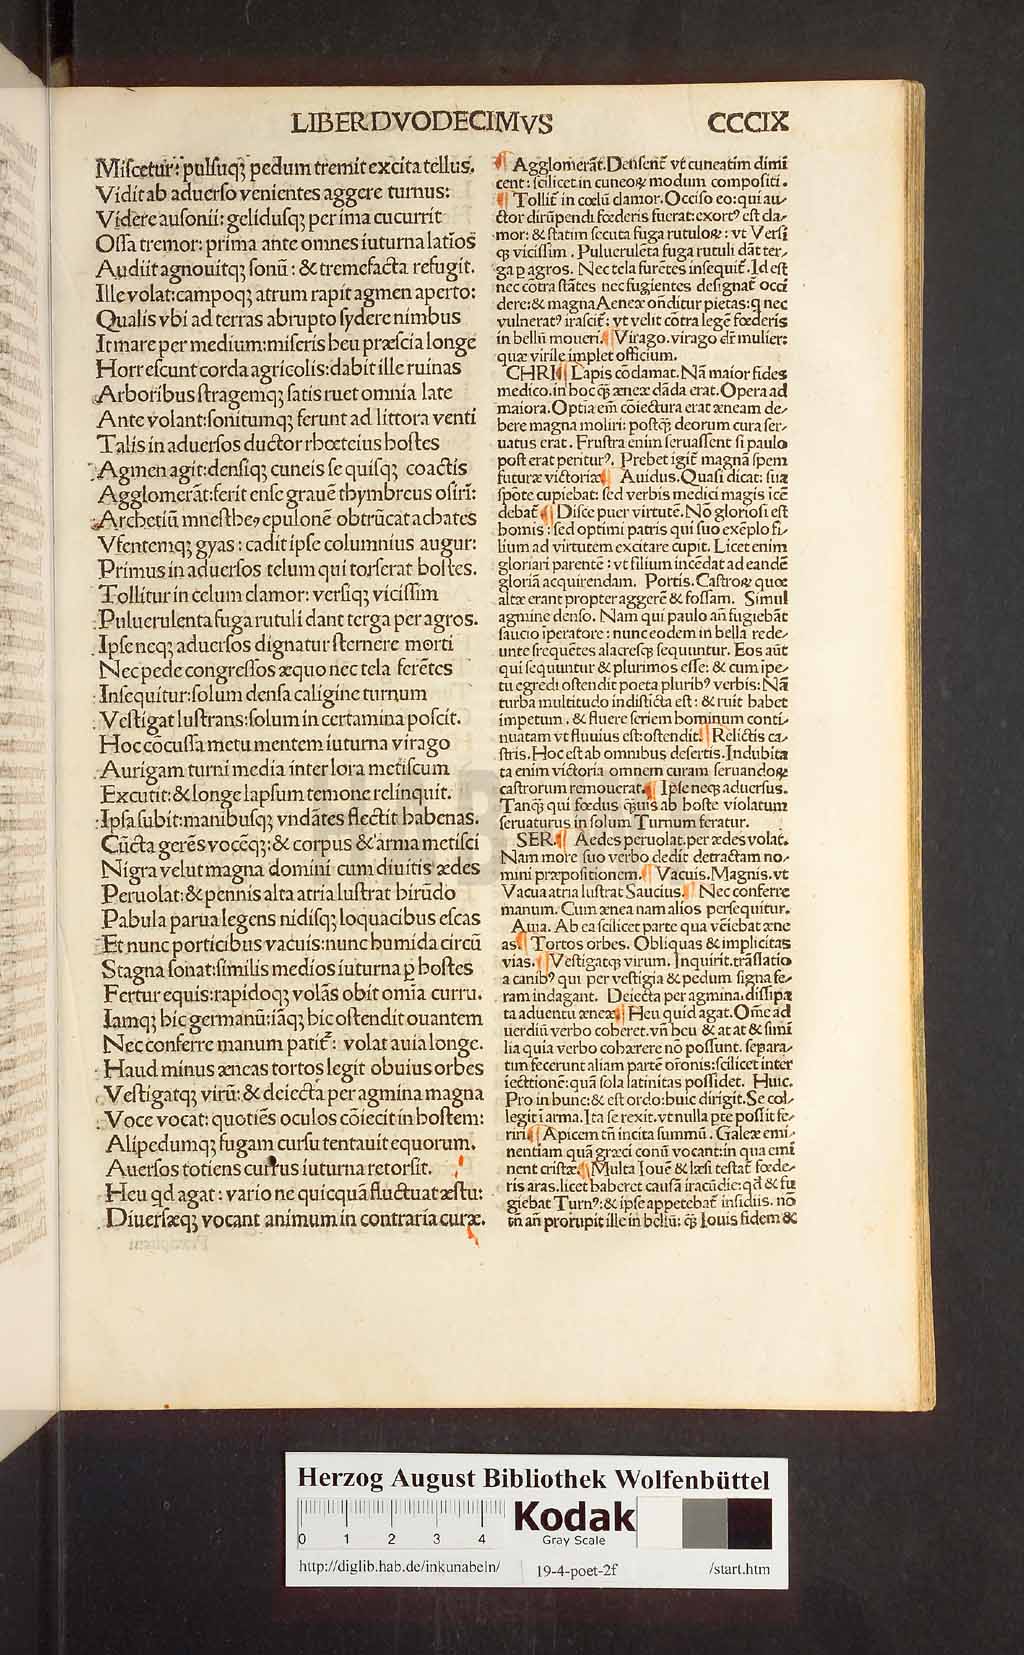 LIBER DVODECIMVS CCCIX
Miscetur: pulsuqꝫ pedum tremit excita tellus.
Vidit ab aduerso venientes aggere turnus:
Videre ausonii: gelidusqꝫ per ima cucurrit
Ossa tremor: prima ante omnes iuturna latīos
Audiit agnouitqꝫ sonū: & tremefacta refugit.
Ille volat: campoqꝫ atrum rapit agmen aperto:
Qualis vbi ad terras abrupto sydere nimbus
It mare per medium: miseris heu præscia longe
Horrescunt corda agricolis: dabit ille ruinas
Arboribus stragemqꝫ satis ruet omnia late
Ante volant: sonitumqꝫ ferunt ad littora venti
Talis in aduersos ductor rhœteius hostes
Agmen agit: densiqꝫ cuneis se quisqꝫ coactis
Agglomerāt: ferit ense grauē thymbreus osirī:
Archetiū mnestheꝰ epulonē obtrūcat achates
Vfentemqꝫ gyas: cadit ipse columnius augur:
Primus in aduersos telum qui torserat hostes.
Tollitur in celum clamor: versiqꝫ vicissim
Puluerulenta fuga rutuli dant terga per agros.
Ipse neqꝫ aduersos dignatur sternere morti
Nec pede congressos æquo nec tela ferētes
Insequitur: solum densa caligine turnum
Vestigat lustrans: solum in certamina poscit.
Hoc cōcussa metu mentem iuturna virago
Aurigam turni media inter lora metiscum
Excutit: & longe lapsum temone relinquit.
Ipsa subit: manibusqꝫ vndātes flectit habenas.
Cūcta gerēs vocēqꝫ: & corpus & arma metisci
Nigra velut magna domini cum diuitis ædes
Peruolat: & pennis alta atria lustrat hirūdo
Pabula parua legens nidisqꝫ loquacibus escas
Et nunc porticibus vacuis: nunc humida circū
Stagna sonat: similis medios iuturna ꝑ hostes
Fertur equis: rapidoqꝫ volās obit omīa curru.
Iamqꝫ hic germanū: iāqꝫ hic ostendit ouantem
Nec conferre manum patit̄: volat auia longe.
Haud minus æneas tortos legit obuius orbes
Vestigatqꝫ virū: & deiecta per agmina magna
Voce vocat: quotiēs oculos cōiecit in hostem:
Alipedumqꝫ fugam cursu tentauit equorum.
Auersos totiens currus iuturna retorsit.
Heu qd agat: vario ne quicquā fluctuat æstu:
Diuersæqꝫ vocant animum in contraria curæ.
¶ Agglomerāt. Densent̄ vt cuneatim dimi
cent: scilicet in cuneoꝝ modum compositi.
¶ Tollit̄ in cœlū clamor. Occiso eo: qui au-
ctor dirūpendi fœderis fuerat: exortꝰ est cla-
mor: & statim secuta fuga rutuloꝝ: vt Versi
qꝫ vicissim. Puluerulēta fuga rutuli dāt ter-
ga ꝑ agros. Nec tela furētes insequit̄. Id est
nec cōtra stātes nec fugientes designat̄ occi
dere: & magna Aeneæ oñditur pietas: q nec
vulneratꝰ irascit̄: vt velit cōtra legē fœderis
in bellū moueri. ¶ Virago. virago dr̄ mulier:
quæ virile implet officium.
CHRI ¶ Lapis cōdamat. Nā maior fides
medico. in hoc qꝫ æneæ dāda erat. Opera ad
maiora. Optia em̄ cōiectura erat æneam de-
bere magna moliri: postqꝫ deorum cura ser-
uatus erat. Frustra enim seruassent si paulo
post erat periturꝰ. Prebet igit̄ magnā spem
futuræ victoriæ ¶ Auidus. Quasi dicat: sua
spōte cupiebat: sed verbis medici magis īcē
debat ¶ Disce puer virtutē. Nō gloriosi est
homīs: sed optimi patris qui suo exēplo fi-
lium ad virtutem excitare cupit. Licet enim
gloriari parentē: vt filium incēdat ad eandē
gloriā acquirendam. Portis. Castroꝝ quæ
altæ erant propter aggerē & fossam. Simul
agmine denso. Nam qui paulo añ fugiebāt
saucio īperatore: nunc eodem in bella rede-
unte frequētes alacresqꝫ sequuntur. Eos aūt
qui sequuntur & plurimos esse: & cum ipe-
tu egredi ostendit poeta pluribꝰ verbis: Nā
turba multitudo indistīcta est: & ruit habet
impetum. & fluere seriem hominum conti-
nuatam vt fluuius est: ostendit. ¶ Relictis ca-
stris. Hoc est ab omnibus desertis. Indubita
ta enim victoria omnem curam seruandoꝝ
castrorum remouerat. ¶ Ipse neqꝫ aduersus.
Tanqꝫ qui fœdus qꝫuis ab hoste violatum
seruaturus in solum Turnum feratur.
SER. ¶ Aedes peruolat. per ædes volat.
Nam more suo verbo dedit detractam no-
mini præpositionem. ¶ Vacuis. Magnis. vt
Vacua atria lustrat Saucius. ¶ Nec conferre
manum. Cum ænea nam alios persequitur.
Auia. Ab ea scilicet parte qua vēiebat æne
as. ¶ Tortos orbes. Obliquas & implicitas
vias. ¶ Vestigatqꝫ virum. Inquirit. trāslatio
a canibꝰ qui per vestigia & pedum signa fe-
ram indagant. Deiecta per agmina. dissipa
ta aduentu æneæ ¶ Heu quid agat. Om̄e ad
uerdiū verbo coheret. vn̄ heu & at at & simi
lia quia verbo cohærere nō possunt. separa-
tim fecerunt aliam partē or̄onis: scilicet inter
iectionē: quā sola latinitas possidet. Huic.
Pro in hunc: & est ordo: huic dirigit. Se col-
legit ī arma. Ita se rexit. vt nulla pte possit fe-
riri ¶ Apicem tñ incita summū. Galeæ emi-
nentiam quā græci conū vocant: in qua emi
nent cristæ. ¶ Multa Iouē & læsi testat̄ fœde-
ris aras. licet haberet causā iracūdie: qd & fu
giebat Turnꝰ: & ipse appetebat̄ insidiis. nō
tñ añ prorupit ille in bellū: qꝫ Iouis fidem &
Herzog August Bibliothek Wolfenbüttel
0 1 2 3 4
Kodak
Gray Scale
http://diglib.hab.de/inkunabeln/ 19-4-poet-2f /start.htm
HAB